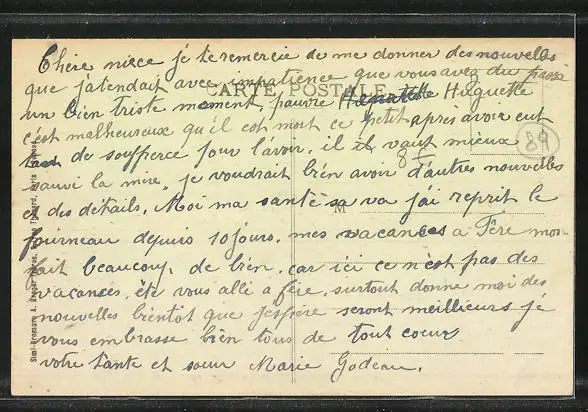 Chère nièce je te remercie de me donner des nouvelles
que j'atendait avec impatience que vous avez du passé
CARTE POSTALE
un bien triste moment, pauvre Huguette
c'est malheureux qu'il est mort ce petit après avoir eut
tant de soufferce pour l'avoir, il il vaut mieux
89
8 f
sauvi la mire, je voudrait bien avoir d'autres nouvelles
et des détails, Moi ma santé sa va j'ai reprit le
M
fourneau depuis 10 jours. mes vacances a Fère mon
fait beaucoup de bien, car ici ce n'est pas des
vacances, ête vous allé a fère, surtout donne moi des
nouvelles bientôt que j'espère seront meilleurs je
vous embrasse bien tous de tout coeur
votre tante et soeur Marie Godeau.